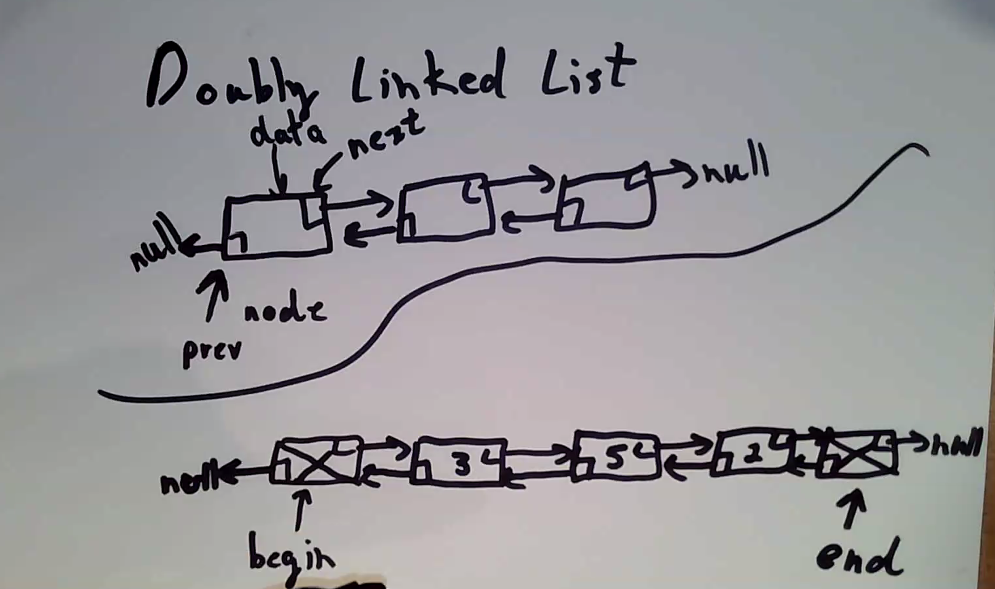 Doubly Linked List
data next
null
null
node
prev
3 5 2
null null
begin end